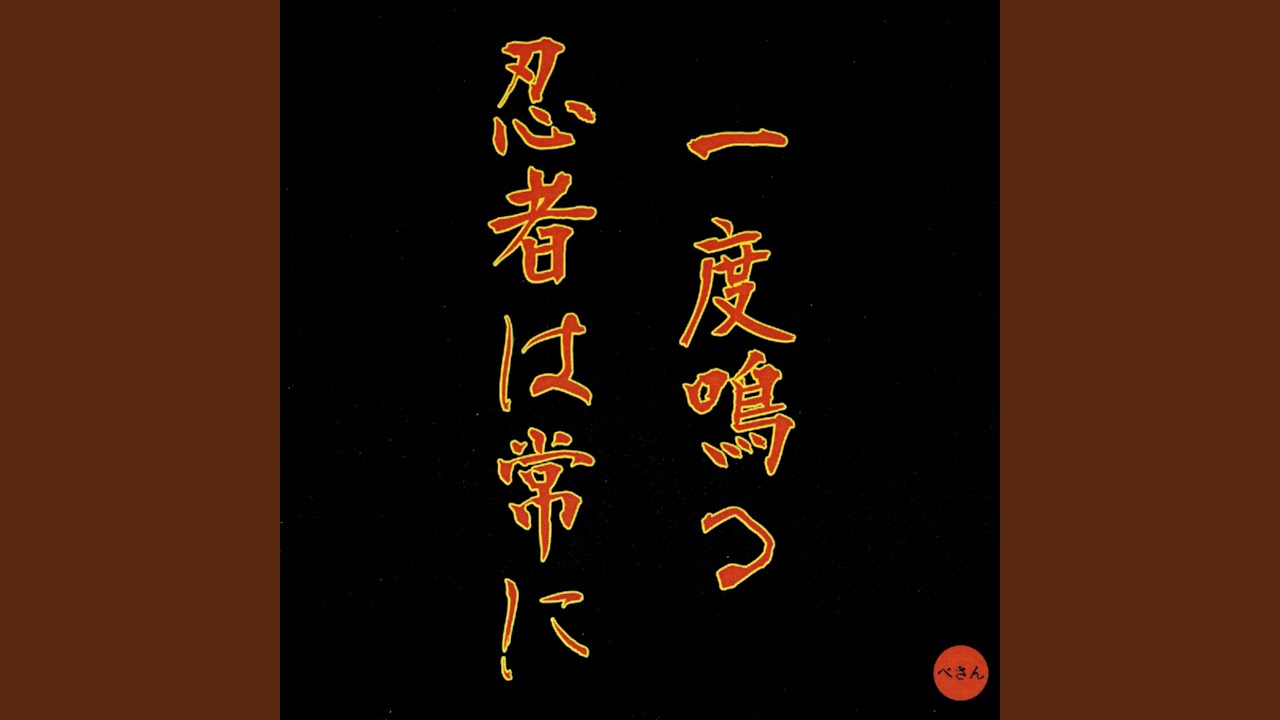 忍者は常に
一度鳴つ
ぺさん